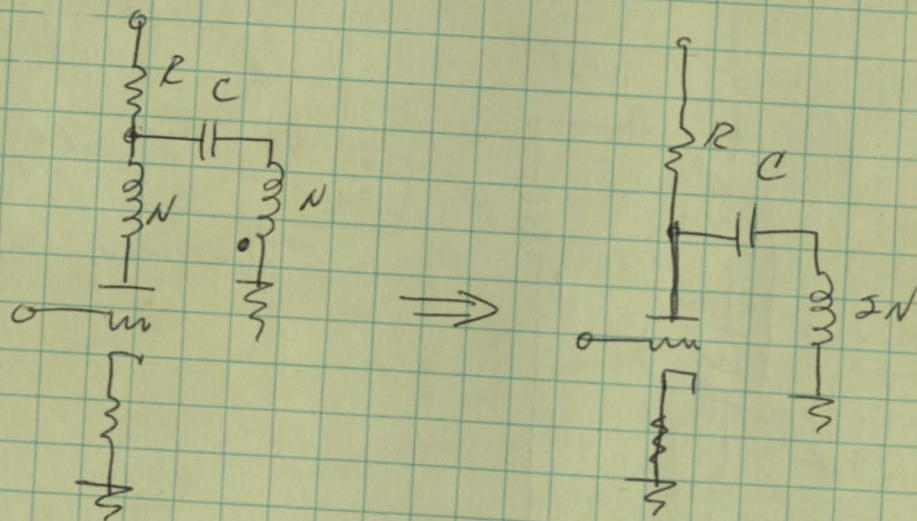 R
C
N
N
R
C
2N